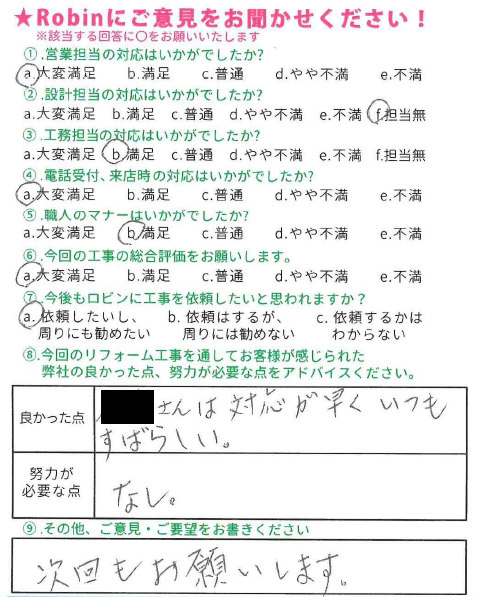 ★Robinにご意見をお聞かせください！
※該当する回答に〇をお願いいたします
①.営業担当の対応はいかがでしたか?
a.大変満足 b.満足 c.普通 d.やや不満 e.不満
②.設計担当の対応はいかがでしたか?
a.大変満足 b.満足 c.普通 d.やや不満 e.不満 f.担当無
③.工務担当の対応はいかがでしたか?
a.大変満足 b.満足 c.普通 d.やや不満 e.不満 f.担当無
④.電話受付、来店時の対応はいかがでしたか?
a.大変満足 b.満足 c.普通 d.やや不満 e.不満
⑤.職人のマナーはいかがでしたか?
a.大変満足 b.満足 c.普通 d.やや不満 e.不満
⑥.今回の工事の総合評価をお願いします。
a.大変満足 b.満足 c.普通 d.やや不満 e.不満
⑦.今後もロビンに工事を依頼したいと思われますか？
a. 依頼したいし、 b. 依頼はするが、 c. 依頼するかは
周りにも勧めたい 周りには勧めない わからない
⑧.今回のリフォーム工事を通してお客様が感じられた
弊社の良かった点、努力が必要な点をアドバイスください。
良かった点
さんは対応が早くいつも
すばらしい。
努力が
必要な点
なし。
⑨.その他、ご意見・ご要望をお書きください
次回もお願いします。